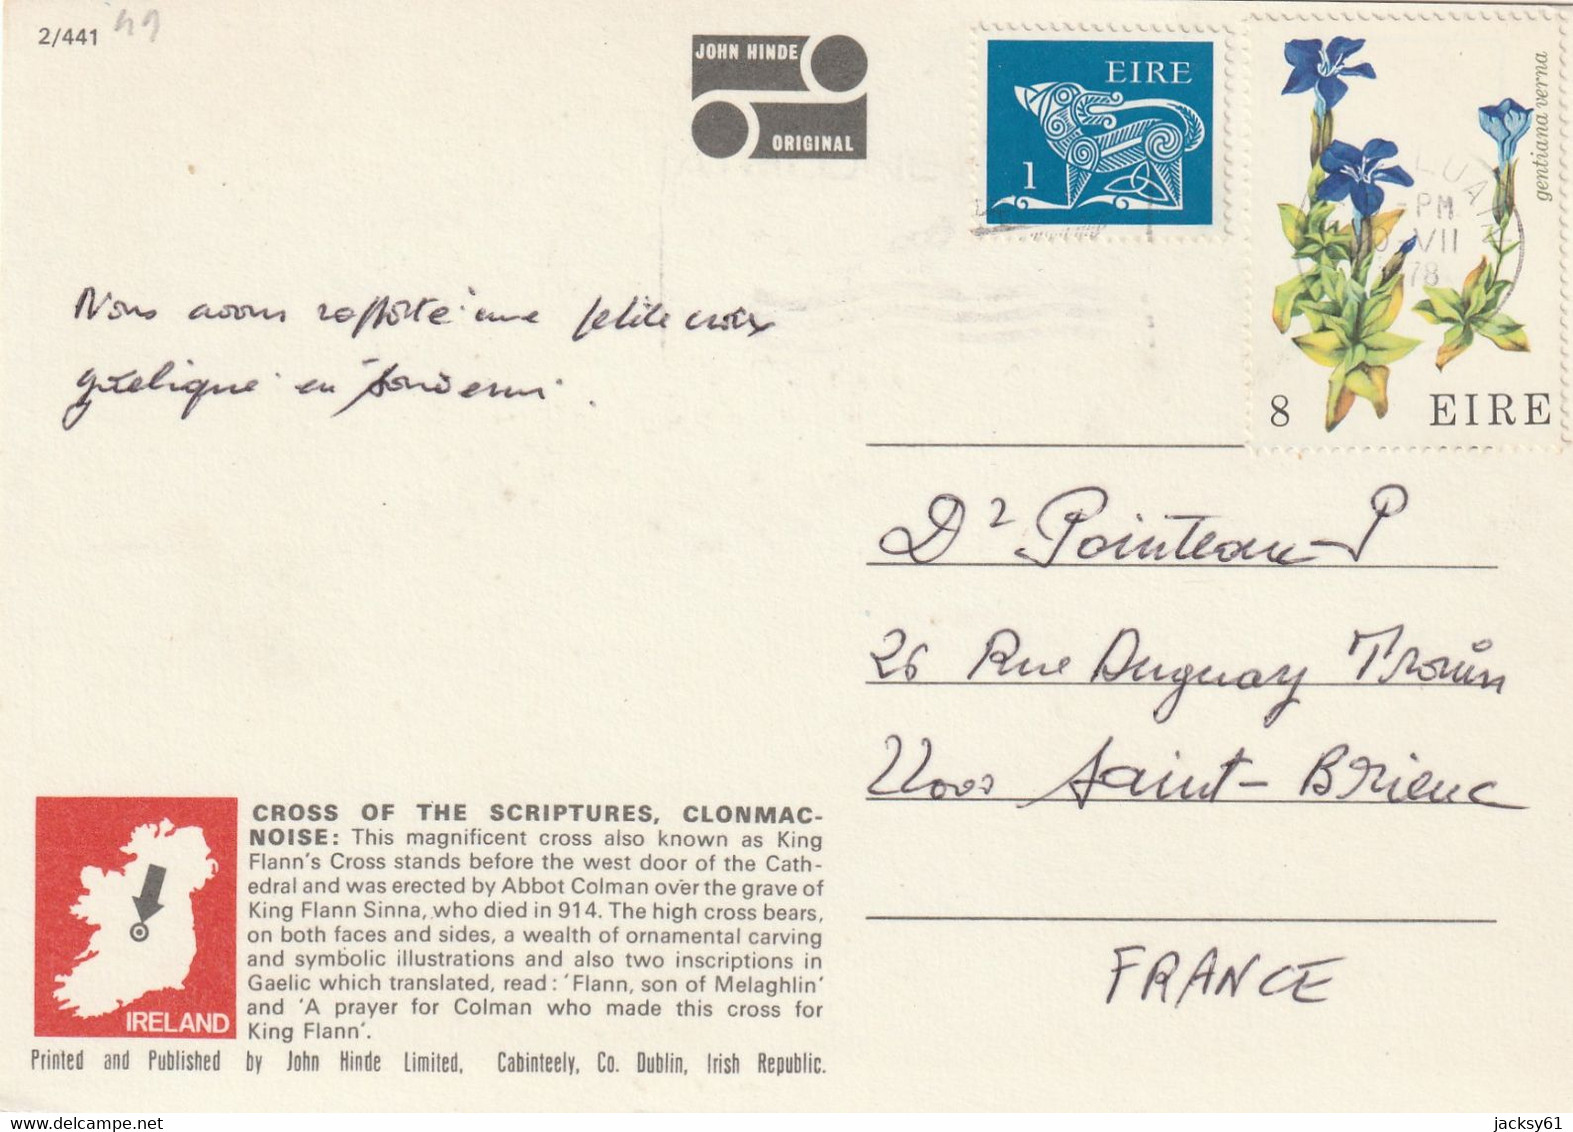 2/441 49
JOHN HINDE
ORIGINAL
EIRE
1
gentiana verna
8 EIRE
LUAIN
PM
VII
78
Nous avons rapporté une petite croix
gaélique en souvenir.
Dr Pointeau P
26 Rue Duguay Trouin
22000 Saint-Brieuc
FRANCE
IRELAND
CROSS OF THE SCRIPTURES, CLONMAC-
NOISE: This magnificent cross also known as King
Flann's Cross stands before the west door of the Cath-
edral and was erected by Abbot Colman over the grave of
King Flann Sinna, who died in 914. The high cross bears,
on both faces and sides, a wealth of ornamental carving
and symbolic illustrations and also two inscriptions in
Gaelic which translated, read: 'Flann, son of Melaghlin'
and 'A prayer for Colman who made this cross for
King Flann'.
Printed and Published by John Hinde Limited, Cabinteely, Co. Dublin, Irish Republic.
jacksy61